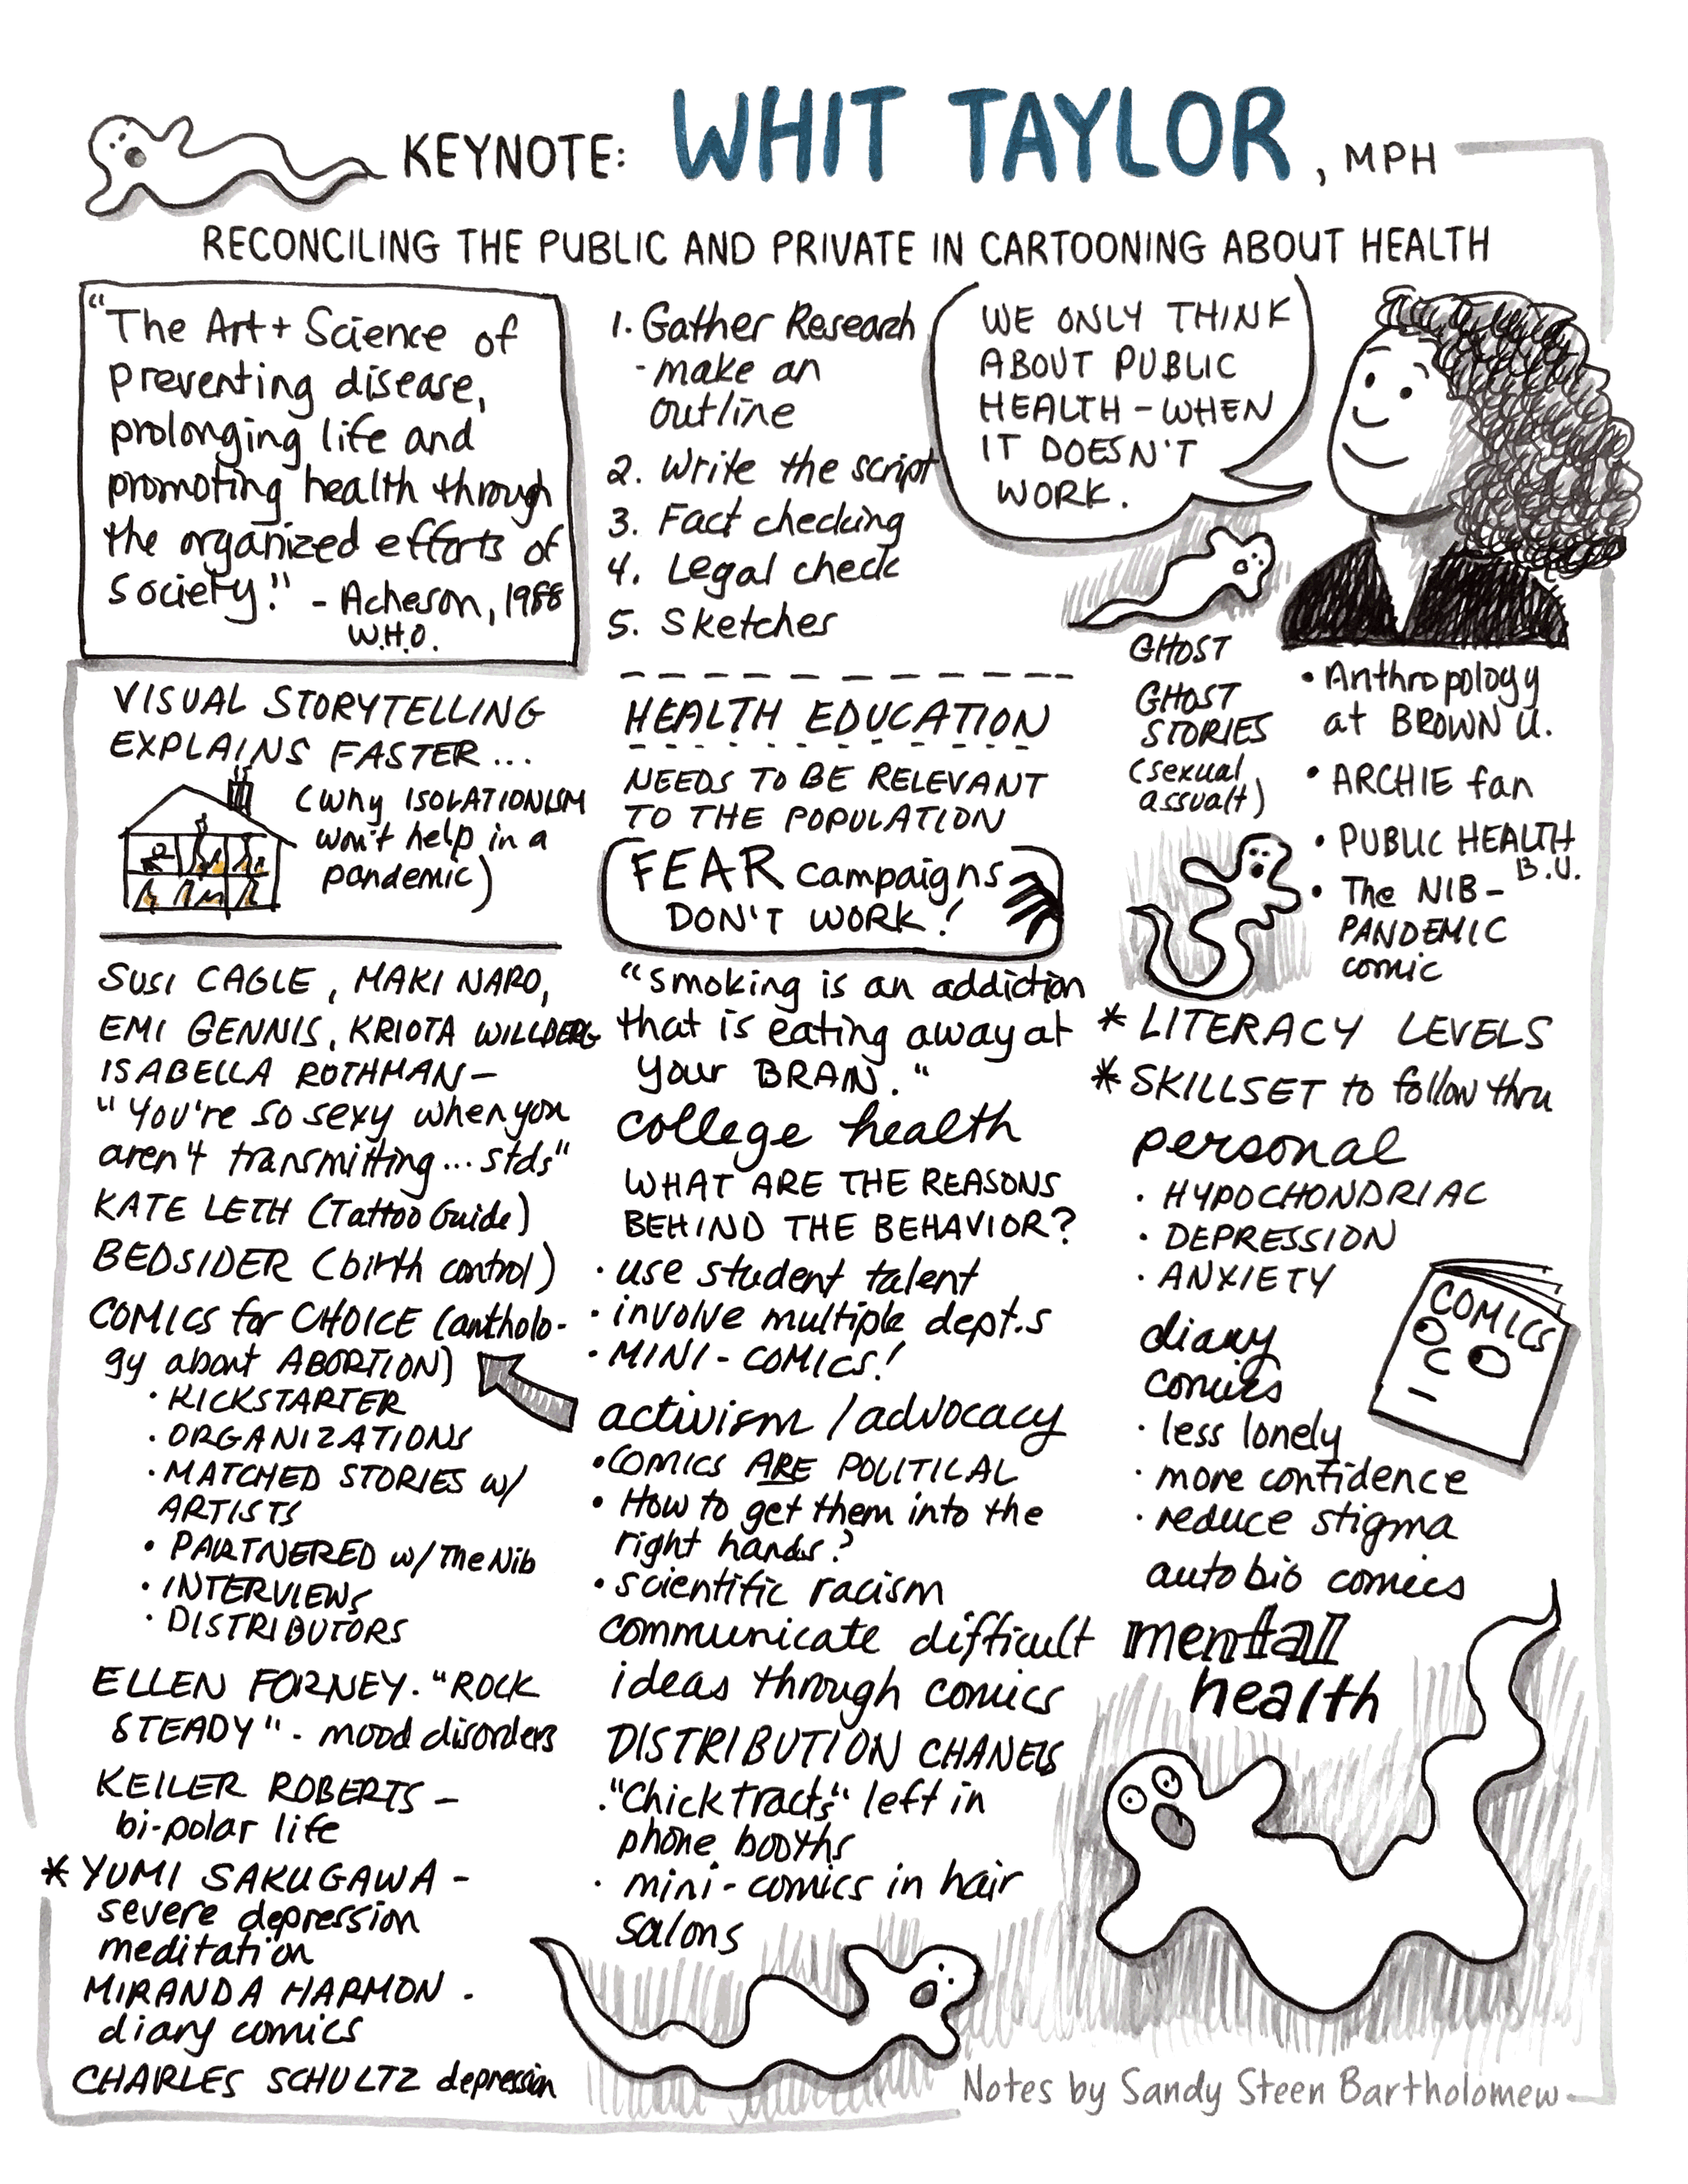 KEYNOTE: WHIT TAYLOR, MPH
RECONCILING THE PUBLIC AND PRIVATE IN CARTOONING ABOUT HEALTH
"The Art + Science of
preventing disease,
prolonging life and
promoting health through
the organized efforts of
society." - Acheson, 1988
W.H.O.
VISUAL STORYTELLING
EXPLAINS FASTER...
(why ISOLATIONISM
won't help in a
pandemic)
SUSI CAGLE, MAKI NARO,
EMI GENNIS, KRIOTA WILLBERG
ISABELLA ROTHMAN -
"You're so sexy when you
aren't transmitting... stds"
KATE LETH (Tattoo Guide)
BEDSIDER (birth control)
COMICS for CHOICE (antholo-
gy about ABORTION)
• KICKSTARTER
• ORGANIZATIONS
• MATCHED STORIES w/
ARTISTS
• PARTNERED w/ The Nib
• INTERVIEWS
• DISTRIBUTORS
ELLEN FORNEY. "ROCK
STEADY" - mood disorders
KEILER ROBERTS -
bi-polar life
* YUMI SAKUGAWA -
severe depression
meditation
MIRANDA HARMON -
diary comics
CHARLES SCHULTZ depression
1. Gather Research
- make an
outline
2. Write the script
3. Fact checking
4. Legal check
5. Sketches
HEALTH EDUCATION
NEEDS TO BE RELEVANT
TO THE POPULATION
FEAR campaigns
DON'T WORK!
"Smoking is an addiction
that is eating away at
your BRAIN."
college health
WHAT ARE THE REASONS
BEHIND THE BEHAVIOR?
• use student talent
• involve multiple dept.s
• MINI-COMICS!
activism / advocacy
• COMICS ARE POLITICAL
• How to get them into the
right hands?
• scientific racism
communicate difficult
ideas through comics
DISTRIBUTION CHANELS
• "Chick Tracts" left in
phone booths
• mini-comics in hair
salons
WE ONLY THINK
ABOUT PUBLIC
HEALTH - WHEN
IT DOESN'T
WORK.
GHOST
GHOST
STORIES
(sexual
assualt)
• Anthropology
at BROWN U.
• ARCHIE fan
• PUBLIC HEALTH
B.U.
• The NIB -
PANDEMIC
comic
* LITERACY LEVELS
* SKILLSET to follow thru
personal
• HYPOCHONDRIAC
• DEPRESSION
• ANXIETY
diary
comics
• less lonely
• more confidence
• reduce stigma
COMICS
autobio comics
mental
health
Notes by Sandy Steen Bartholomew